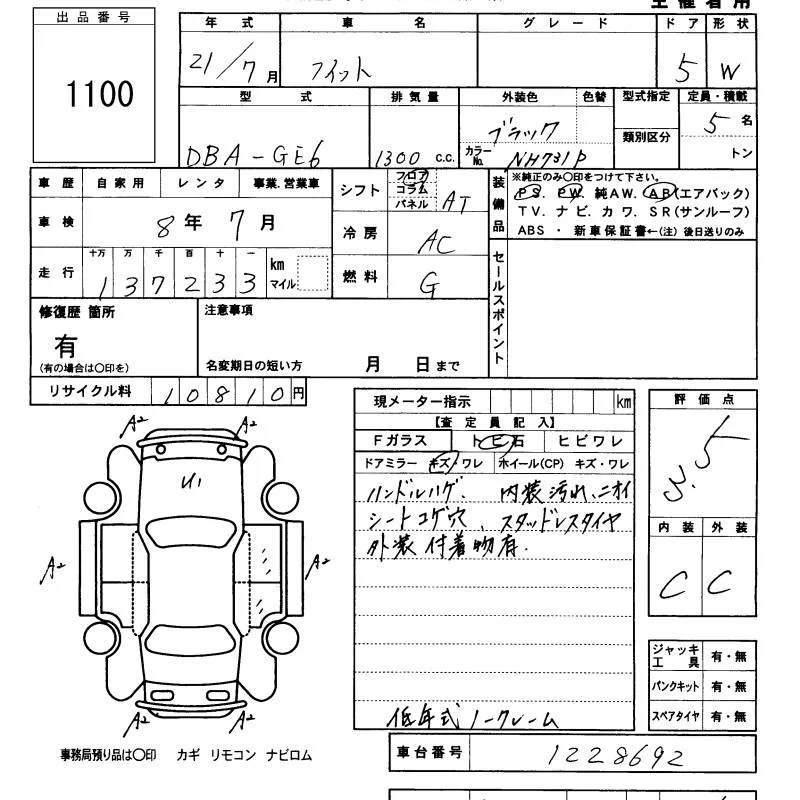 出品番号
1100
年式 車名 グレード ドア 形状
21/7月 フィット 5 W
型式 排気量 外装色 色替 型式指定 定員・積載
DBA-GE6 1300 c.c. ブラック 5名
カラーNo. NH731P 類別区分 トン
車歴 自家用 レンタ 事業.営業車
車検 8年 7月
走行 十万 万 千 百 十 一 km マイル
137233
シフト フロア コラム パネル AT
冷房 AC
燃料 G
装備品 ※純正のみ〇印をつけて下さい。
PS. PW. 純AW. AB(エアバック)
TV. ナビ. カワ. SR(サンルーフ)
ABS ・ 新車保証書←(注) 後日送りのみ
セールスポイント
修復歴 箇所
有
(有の場合は〇印を)
注意事項
名変期日の短い方 月 日まで
リサイクル料 10810円
現メーター指示 km
【査定員記入】
Fガラス トビ石 ヒビワレ
ドアミラー キズ・ワレ ホイール(CP) キズ・ワレ
ハンドルハゲ. 内装汚れ、ニオイ
シートコゲ穴、スタッドレスタイヤ
外装付着物有.
低年式ノークレーム
評価点
3.5
内装 外装
C C
ジャッキ工具 有・無
パンクキット 有・無
スペアタイヤ 有・無
A2 A2
U1
A2 A2
A2 A2
事務局預り品は〇印 カギ リモコン ナビロム
車台番号 1228692